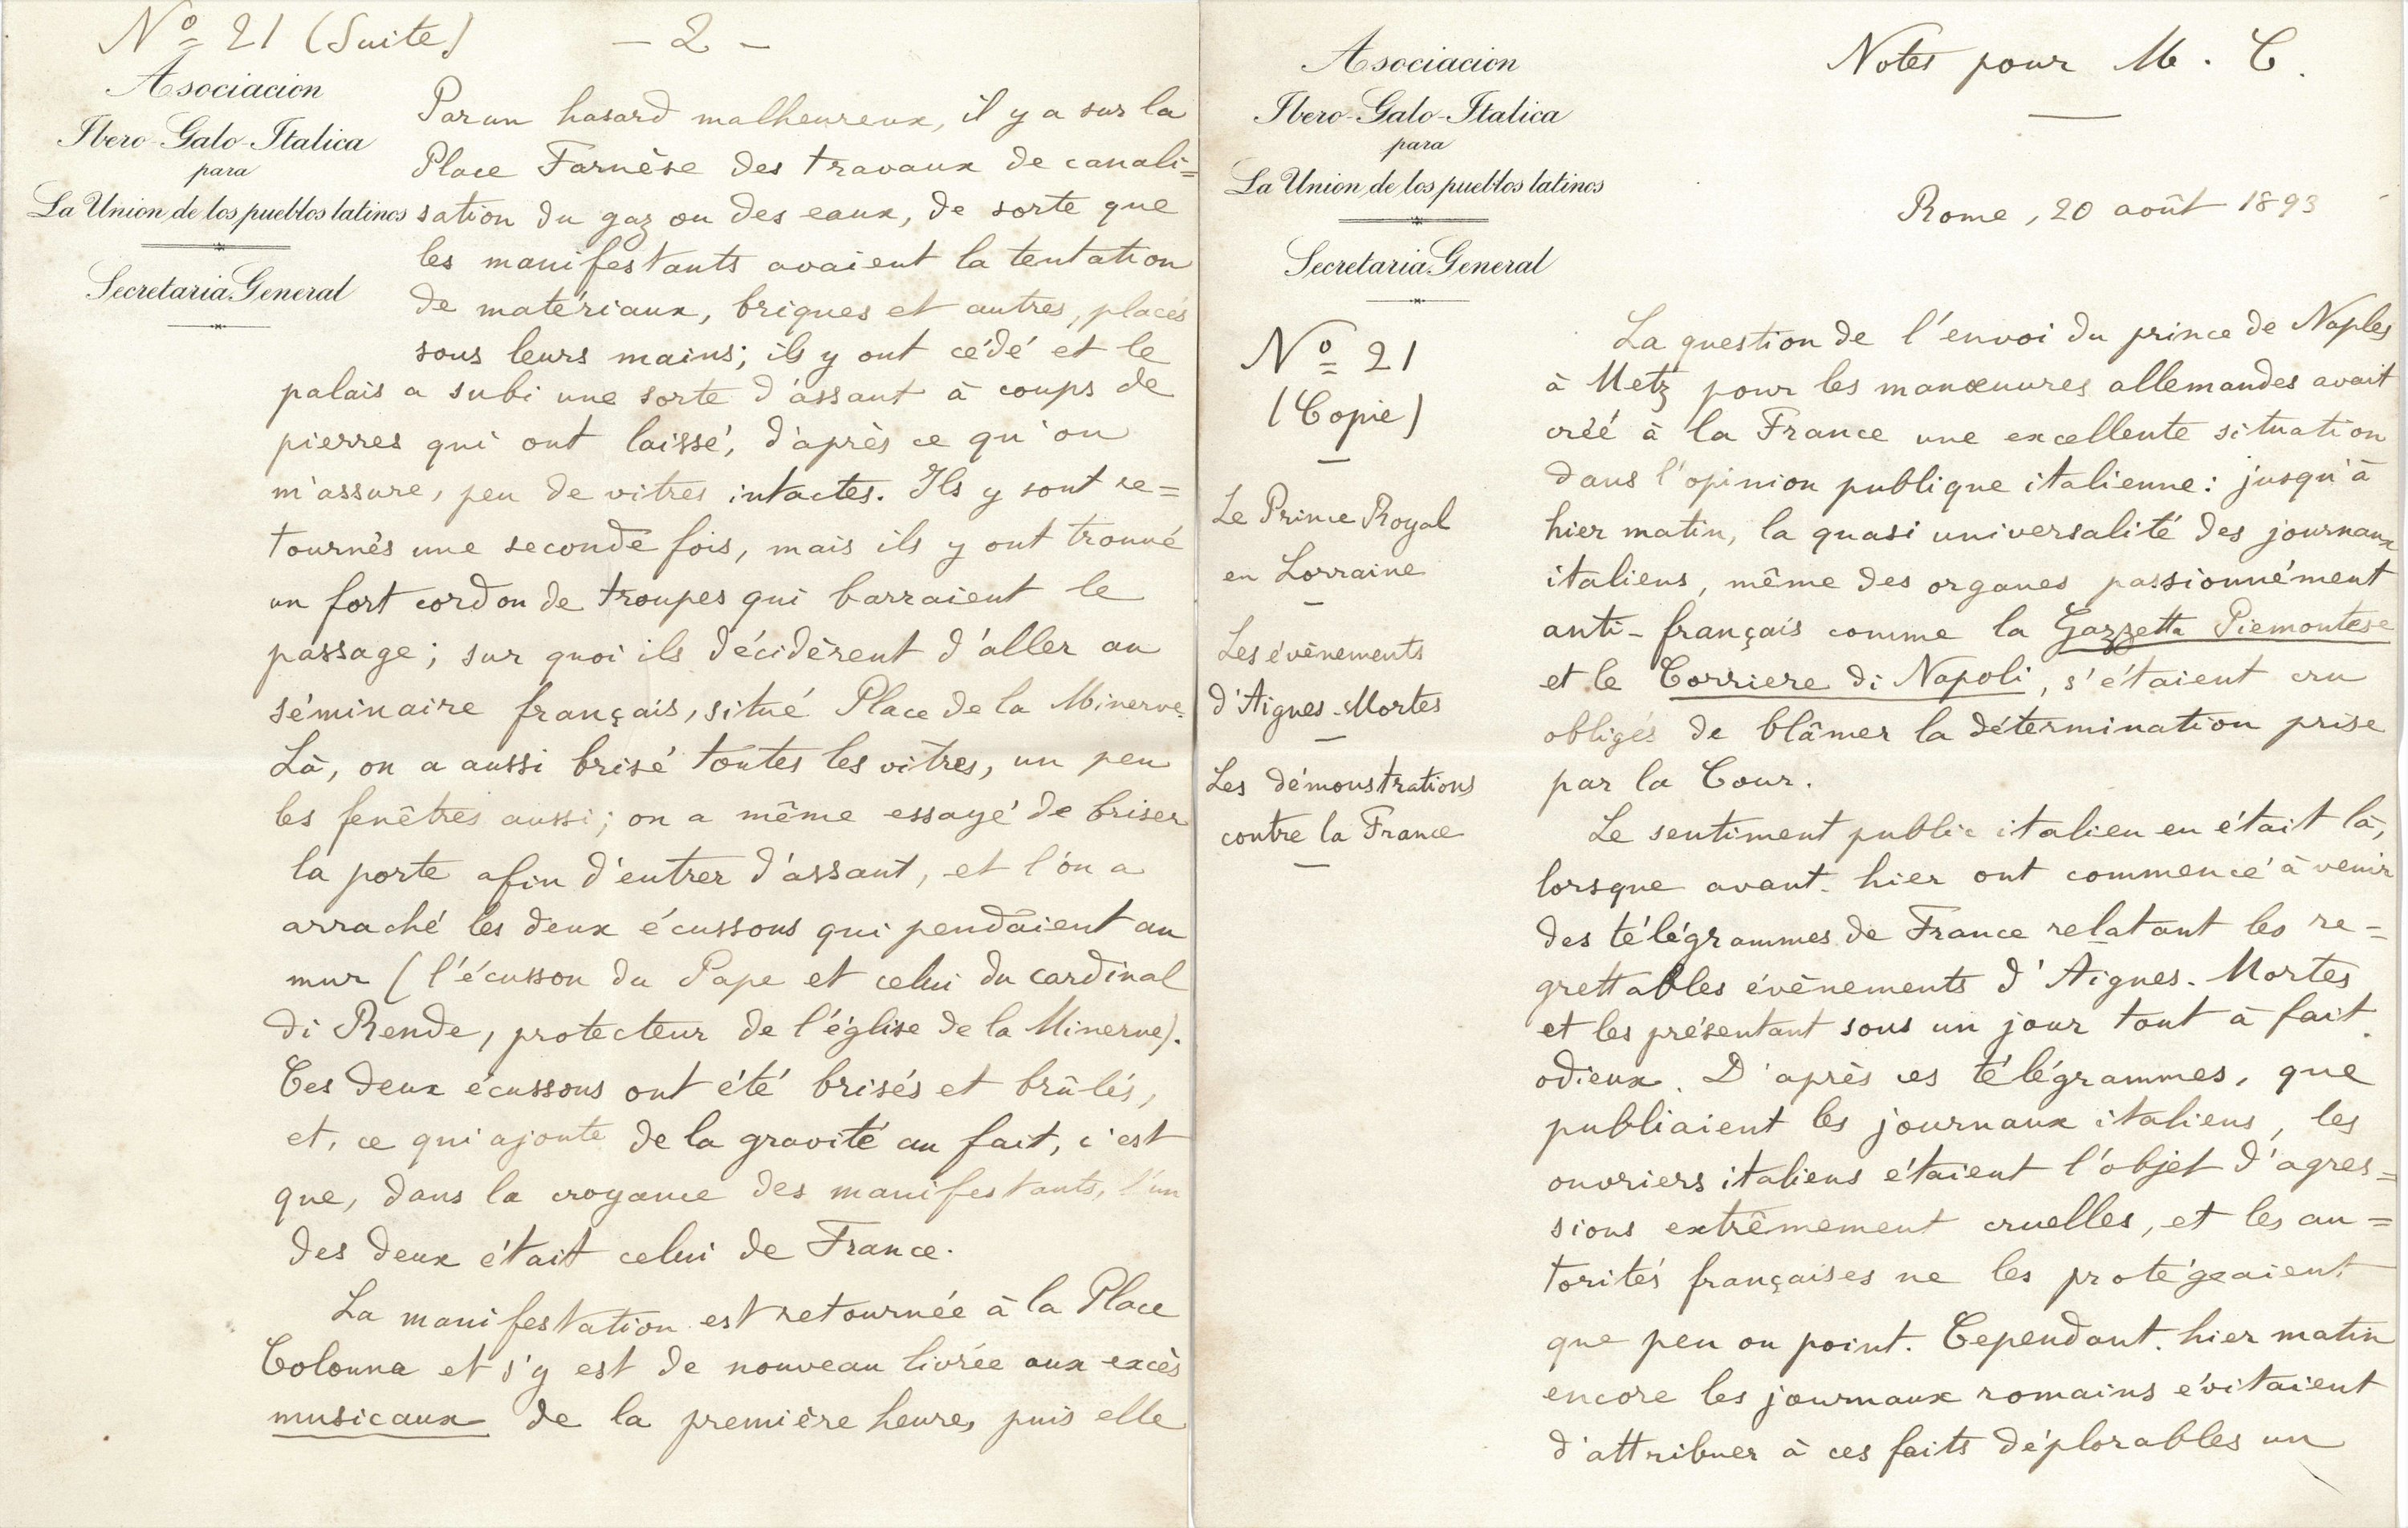 Nº 21 (Suite) – 2 –
Asociacion
Ibero-Galo-Italica
para
La Union de los pueblos latinos
Secretaria General
Par un hasard malheureux, il y a sur la
Place Farnèse des travaux de canali=
sation du gaz ou des eaux, de sorte que
les manifestants avaient la tentation
de matériaux, briques et autres, placés
sous leurs mains; ils y ont cédé et le
palais a subi une sorte d'assaut à coups de
pierres qui ont laissé, d'après ce qu'on
m'assure, peu de vitres intactes. Ils y sont re=
tournés une seconde fois, mais ils y ont trouvé
un fort cordon de troupes qui barraient le
passage; sur quoi ils décidèrent d'aller au
séminaire français, situé Place de la Minerve.
Là, on a aussi brisé toutes les vitres, un peu
les fenêtres aussi; on a même essayé de briser
la porte afin d'entrer d'assaut, et l'on a
arraché les deux écussons qui pendaient au
mur (l'écusson du Pape et celui du cardinal
di Rende, protecteur de l'église de la Minerve).
Ces deux écussons ont été brisés et brûlés,
et, ce qui ajoute de la gravité au fait, c'est
que, dans la croyance des manifestants, l'un
des deux était celui de France.
La manifestation est retournée à la Place
Colonna et s'y est de nouveau livrée aux excès
musicaux de la première heure, puis elle
Asociacion
Ibero-Galo-Italica
para
La Union de los pueblos latinos
Secretaria General
Nº 21
(Copie)
Le Prince Royal
en Lorraine
Les évènements
d'Aigues-Mortes
Les démonstrations
contre la France
Notes pour M. C.
Rome, 20 août 1893
La question de l'envoi du prince de Naples
à Metz pour les manœuvres allemandes avait
créé à la France une excellente situation
dans l'opinion publique italienne: jusqu'à
hier matin, la quasi universalité des journaux
italiens, même des organes passionnément
anti-français comme la Gazzetta Piemontese
et le Corriere di Napoli, s'étaient cru
obligés de blâmer la détermination prise
par la Cour.
Le sentiment public italien en était là,
lorsque avant-hier ont commencé à venir
des télégrammes de France relatant les re=
grettables évènements d'Aigues-Mortes
et les présentant sous un jour tout à fait
odieux. D'après ces télégrammes, que
publiaient les journaux italiens, les
ouvriers italiens étaient l'objet d'agres=
sions extrêmement cruelles, et les au=
torités françaises ne les protégeaient
que peu ou point. Cependant, hier matin
encore les journaux romains évitaient
d'attribuer à ces faits déplorables un